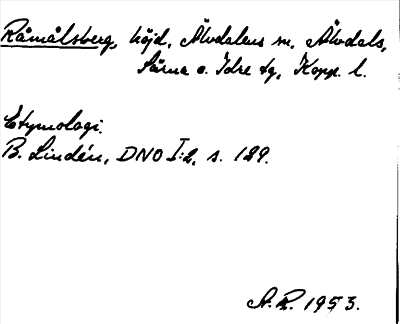 Råmålsberg, höjd, Älvdalens sn, Älvdals,
Särna o. Idre tg, Kopp. l.
Etymologi.
B. Lindén, DNO I:2, s. 129.
St. R. 1953.